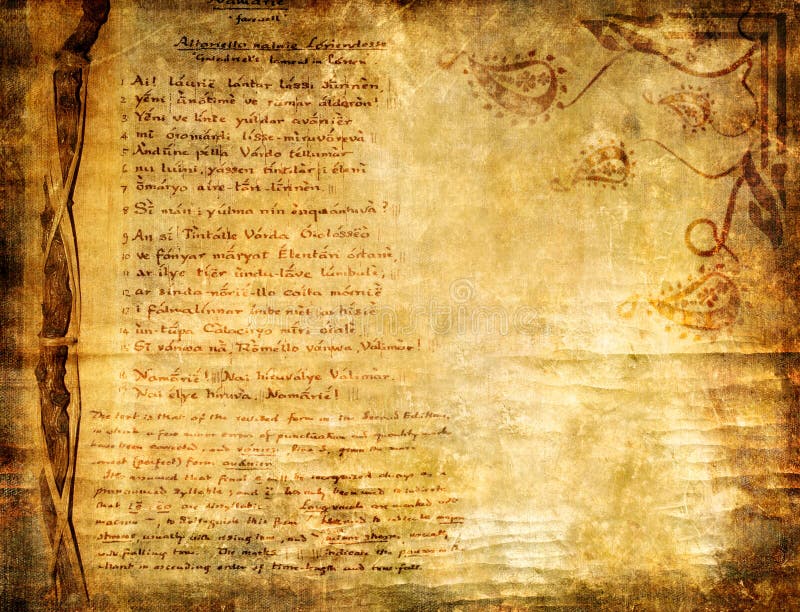 Namárië
"farewell"
Altariello nainië Lóriendesse
Galadriel's lament in Lórien
1 Ai! láurië lantar lássi súrinen,
2 yéni ūnótime ve rámar aldaron!
3 Yéni ve linte yuldar avánier
4 mi oromardi lisse-miruvóreva
5 Andúne pella Vardo tellumar
6 nu luini, yassen tintilar i eleni
7 ómaryo aire-tári-lírinen.
8 Sī mán i yulma nin enquantuva?
9 An sī Tintalle Varda Oiolosseo
10 ve fanyar máryat Elentári ortane,
11 ar ilye tier undu-láve lumbule;
12 ar sinda-nórie-llo caita mornie
13 i falmalinnar imbe met, ar hísie
14 un-túpa Calaciryo míri oiale.
15 Sī vanwa ná, Rómello vanwa, Valimar!
16 Namárië! Nai hiruvalye Valimar.
17 Nai elye hiruva, Namárië!
The text is that of the revised form in the Second Edition,
in which a few minor errors of punctuation and quantity
have been corrected, and
correct (perfect) form avánier.
It is assumed that final e will be recognized always as a
pronounced syllable; and
that are disyllabic. Long vowels are marked with
macron -, to distinguish this from used to
usually with rising tone, and
with falling tone. The marks indicate the
chant in descending order of time-length and tone-fall.